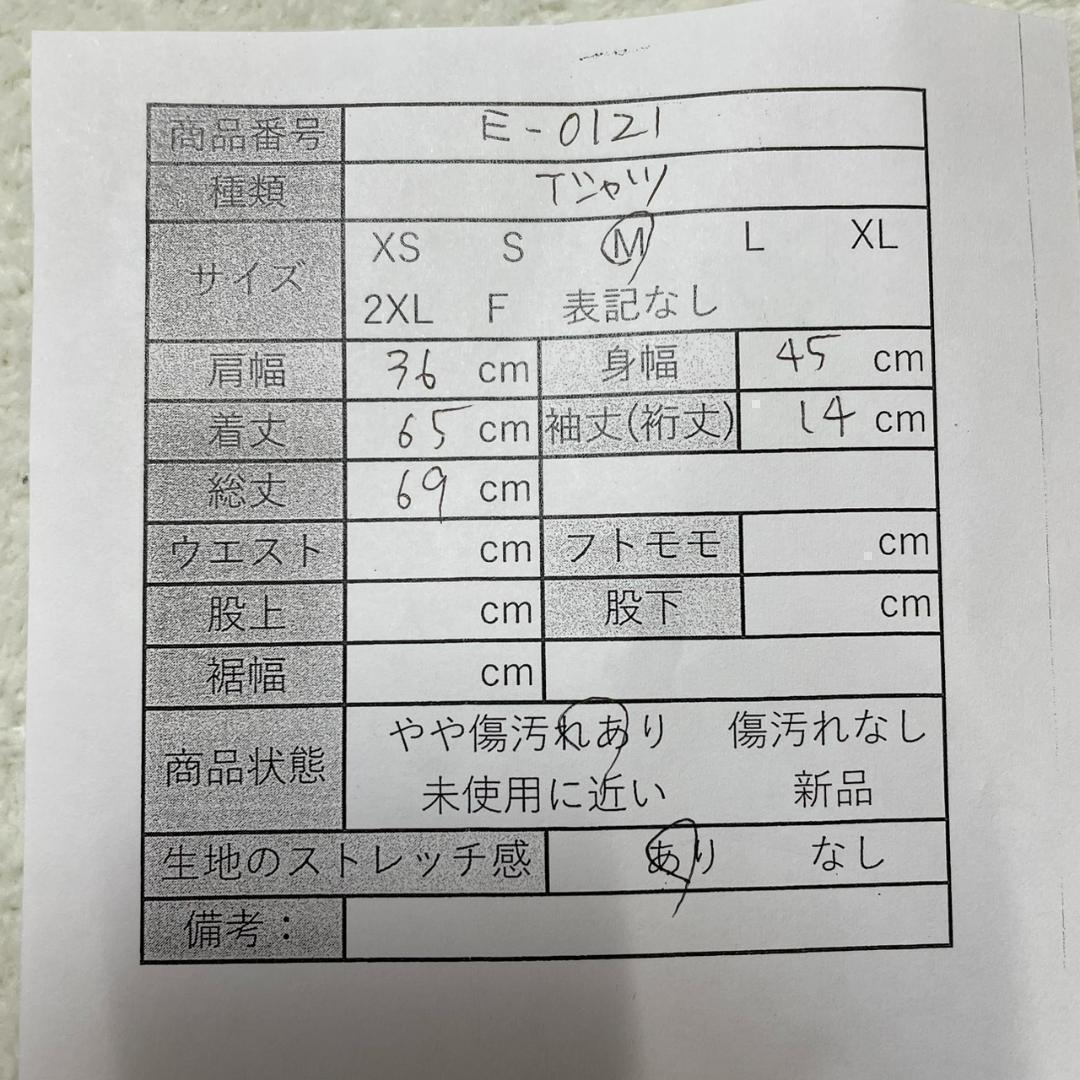 商品番号 E-0121
種類 Tシャツ
サイズ XS S M L XL
2XL F 表記なし
肩幅 36 cm 身幅 45 cm
着丈 65 cm 袖丈(裄丈) 14 cm
総丈 69 cm
ウエスト cm フトモモ cm
股上 cm 股下 cm
裾幅 cm
商品状態 やや傷汚れあり 傷汚れなし
未使用に近い 新品
生地のストレッチ感 あり なし
備考：